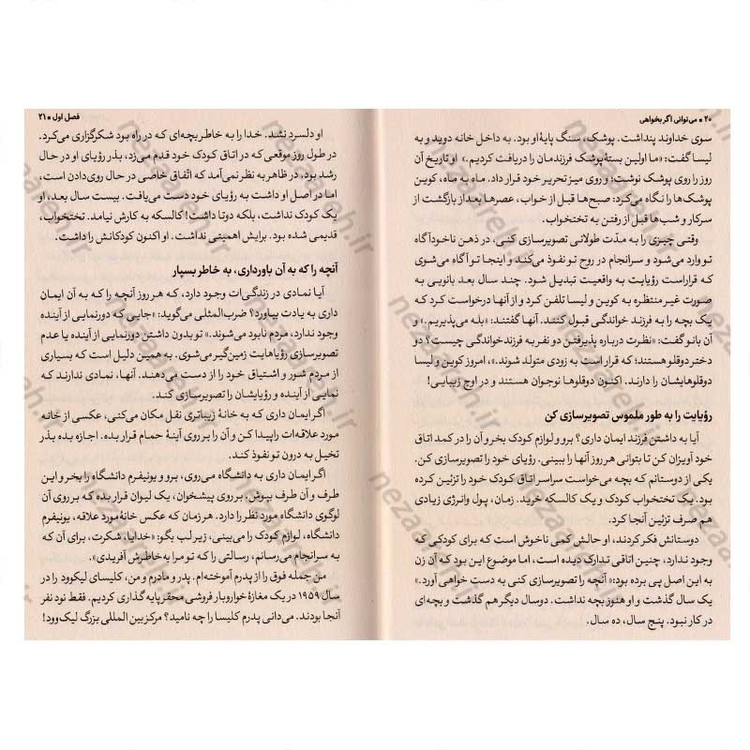 ۲۰ * می‌توانی اگر بخواهی
سوی خداوند پنداشت. پوشک، سنگ پایهٔ او بود. به داخل خانه دوید و به
لیسا گفت: «ما اولین بستهٔ پوشک فرزندمان را دریافت کردیم.» او تاریخ آن
روز را روی پوشک نوشت؛ و روی میز تحریر خود قرار داد. ماه به ماه، کوین
پوشک‌ها را نگاه می‌کرد: صبح‌ها قبل از خواب، عصرها بعد از بازگشت از
سرکار و شب‌ها قبل از رفتن به تختخواب.
وقتی چیزی را به مدّت طولانی تصویرسازی کنی، در ذهن ناخودآگاه
تو وارد می‌شود و سرانجام در روح تو نفوذ می‌کند و اینجا تو آگاه می‌شوی
که قرار است رؤیایت به واقعیت تبدیل شود. چند سال بعد بانویی به
صورت غیر منتظره به کوین و لیسا تلفن کرد و از آنها درخواست کرد که
یک بچه را به فرزند خواندگی قبول کنند. آنها گفتند: «بله می‌پذیریم.» و
آن بانو گفت: «نظرت درباره پذیرفتن دو نفر به فرزند خواندگی چیست؟ دو
دختر دوقلو هستند؛ که قرار است به زودی متولد شوند.»، امروز کوین و لیسا
دوقلوهایشان را دارند. اکنون دوقلوها نوجوان هستند و در اوج زیبایی!
رؤیایت را به طور ملموس تصویرسازی کن
آیا به داشتن فرزند ایمان داری؟ برو و لوازم کودک بخر و آن را در کمد اتاق
خود آویزان کن تا بتوانی هر روز آنها را ببینی. رؤیای خود را تصویرسازی کن.
یکی از دوستانم که بچه می‌خواست سراسر اتاق کودک خود را تزئین کرده
بود. یک تختخواب کودک و یک کالسکه خرید. زمان، پول و انرژی زیادی
هم صرف تزئین آنجا کرد.
دوستانش فکر کردند، او حالش کمی ناخوش است که برای کودکی که
وجود ندارد، چنین اتاقی تدارک دیده است، اما موضوع این بود که آن زن
به این اصل پی برده بود: «آنچه را تصویرسازی کنی به دست خواهی آورد.»
یک سال گذشت و او هنوز بچه نداشت. دو سال دیگر هم گذشت و بچه‌ای
در کار نبود. پنج سال، ده سال.
فصل اول * ۲۱
او دلسرد نشد. خدا را به خاطر بچه‌ای که در راه بود شکرگزاری می‌کرد.
در طول روز موقعی که در اتاق کودک خود قدم می‌زد، بذر رؤیای او در حال
رشد بود، در ظاهر به نظر نمی‌آمد که اتّفاق خاصی در حال روی‌دادن است،
اما در اصل او داشت به رؤیای خود دست می‌یافت. بیست سال بعد، او
یک کودک نداشت، بلکه دوتا داشت! کالسکه به کارش نیامد. تختخواب،
قدیمی شده بود. برایش اهمیتی نداشت. او اکنون کودکانش را داشت.
آنچه را که به آن باورداری، به خاطر بسپار
آیا نمادی در زندگی‌ات وجود دارد، که هر روز آنچه را که به آن ایمان
داری به یادت بیاورد؟ ضرب‌المثلی می‌گوید: «جایی که دورنمایی از آینده
وجود ندارد، مردم نابود می‌شوند.» تو بدون داشتن دورنمایی از آینده یا عدم
تصویرسازی رؤیاهایت زمین‌گیر می‌شوی. به همین دلیل است که بسیاری
از مردم شور و اشتیاق خود را از دست می‌دهند. آنها، نمادی ندارند که
نمایی از آینده و رؤیایشان را تصویرسازی کند.
اگر ایمان داری که به خانهٔ زیباتری نقل مکان می‌کنی، عکسی از خانه
مورد علاقه‌ات را پیدا کن و آن را بر روی آینهٔ حمام قرار بده. اجازه بده بذر
تخیل به درون تو نفوذ کند.
اگر ایمان داری به دانشگاه می‌روی، برو و یونیفرم دانشگاه را بخر و این
طرف و آن طرف بپوش. بر روی پیشخوان، یک لیوان قرار بده که بر روی آن
لوگوی دانشگاه مورد نظر را دارد. هر زمان که عکس خانهٔ مورد علاقه، یونیفرم
دانشگاه، لوازم کودک را می‌بینی، زیر لب بگو: «خدایا، شکرت، برای آن چه
به سرانجام می‌رسانم، رسالتی را که تو مرا به خاطرش آفریدی.»
من جمله فوق را از پدرم آموخته‌ام. پدر و مادرم و من، کلیسای لیکوود را در
سال ۱۹۵۹ در یک مغازهٔ خواروبار فروشی محقر پایه گذاری کردیم. فقط نود نفر
آنجا بودند. می‌دانی پدرم کلیسا را چه نامید؟ مرکز بین المللی بزرگ لیک وود!
nezaareh.ir